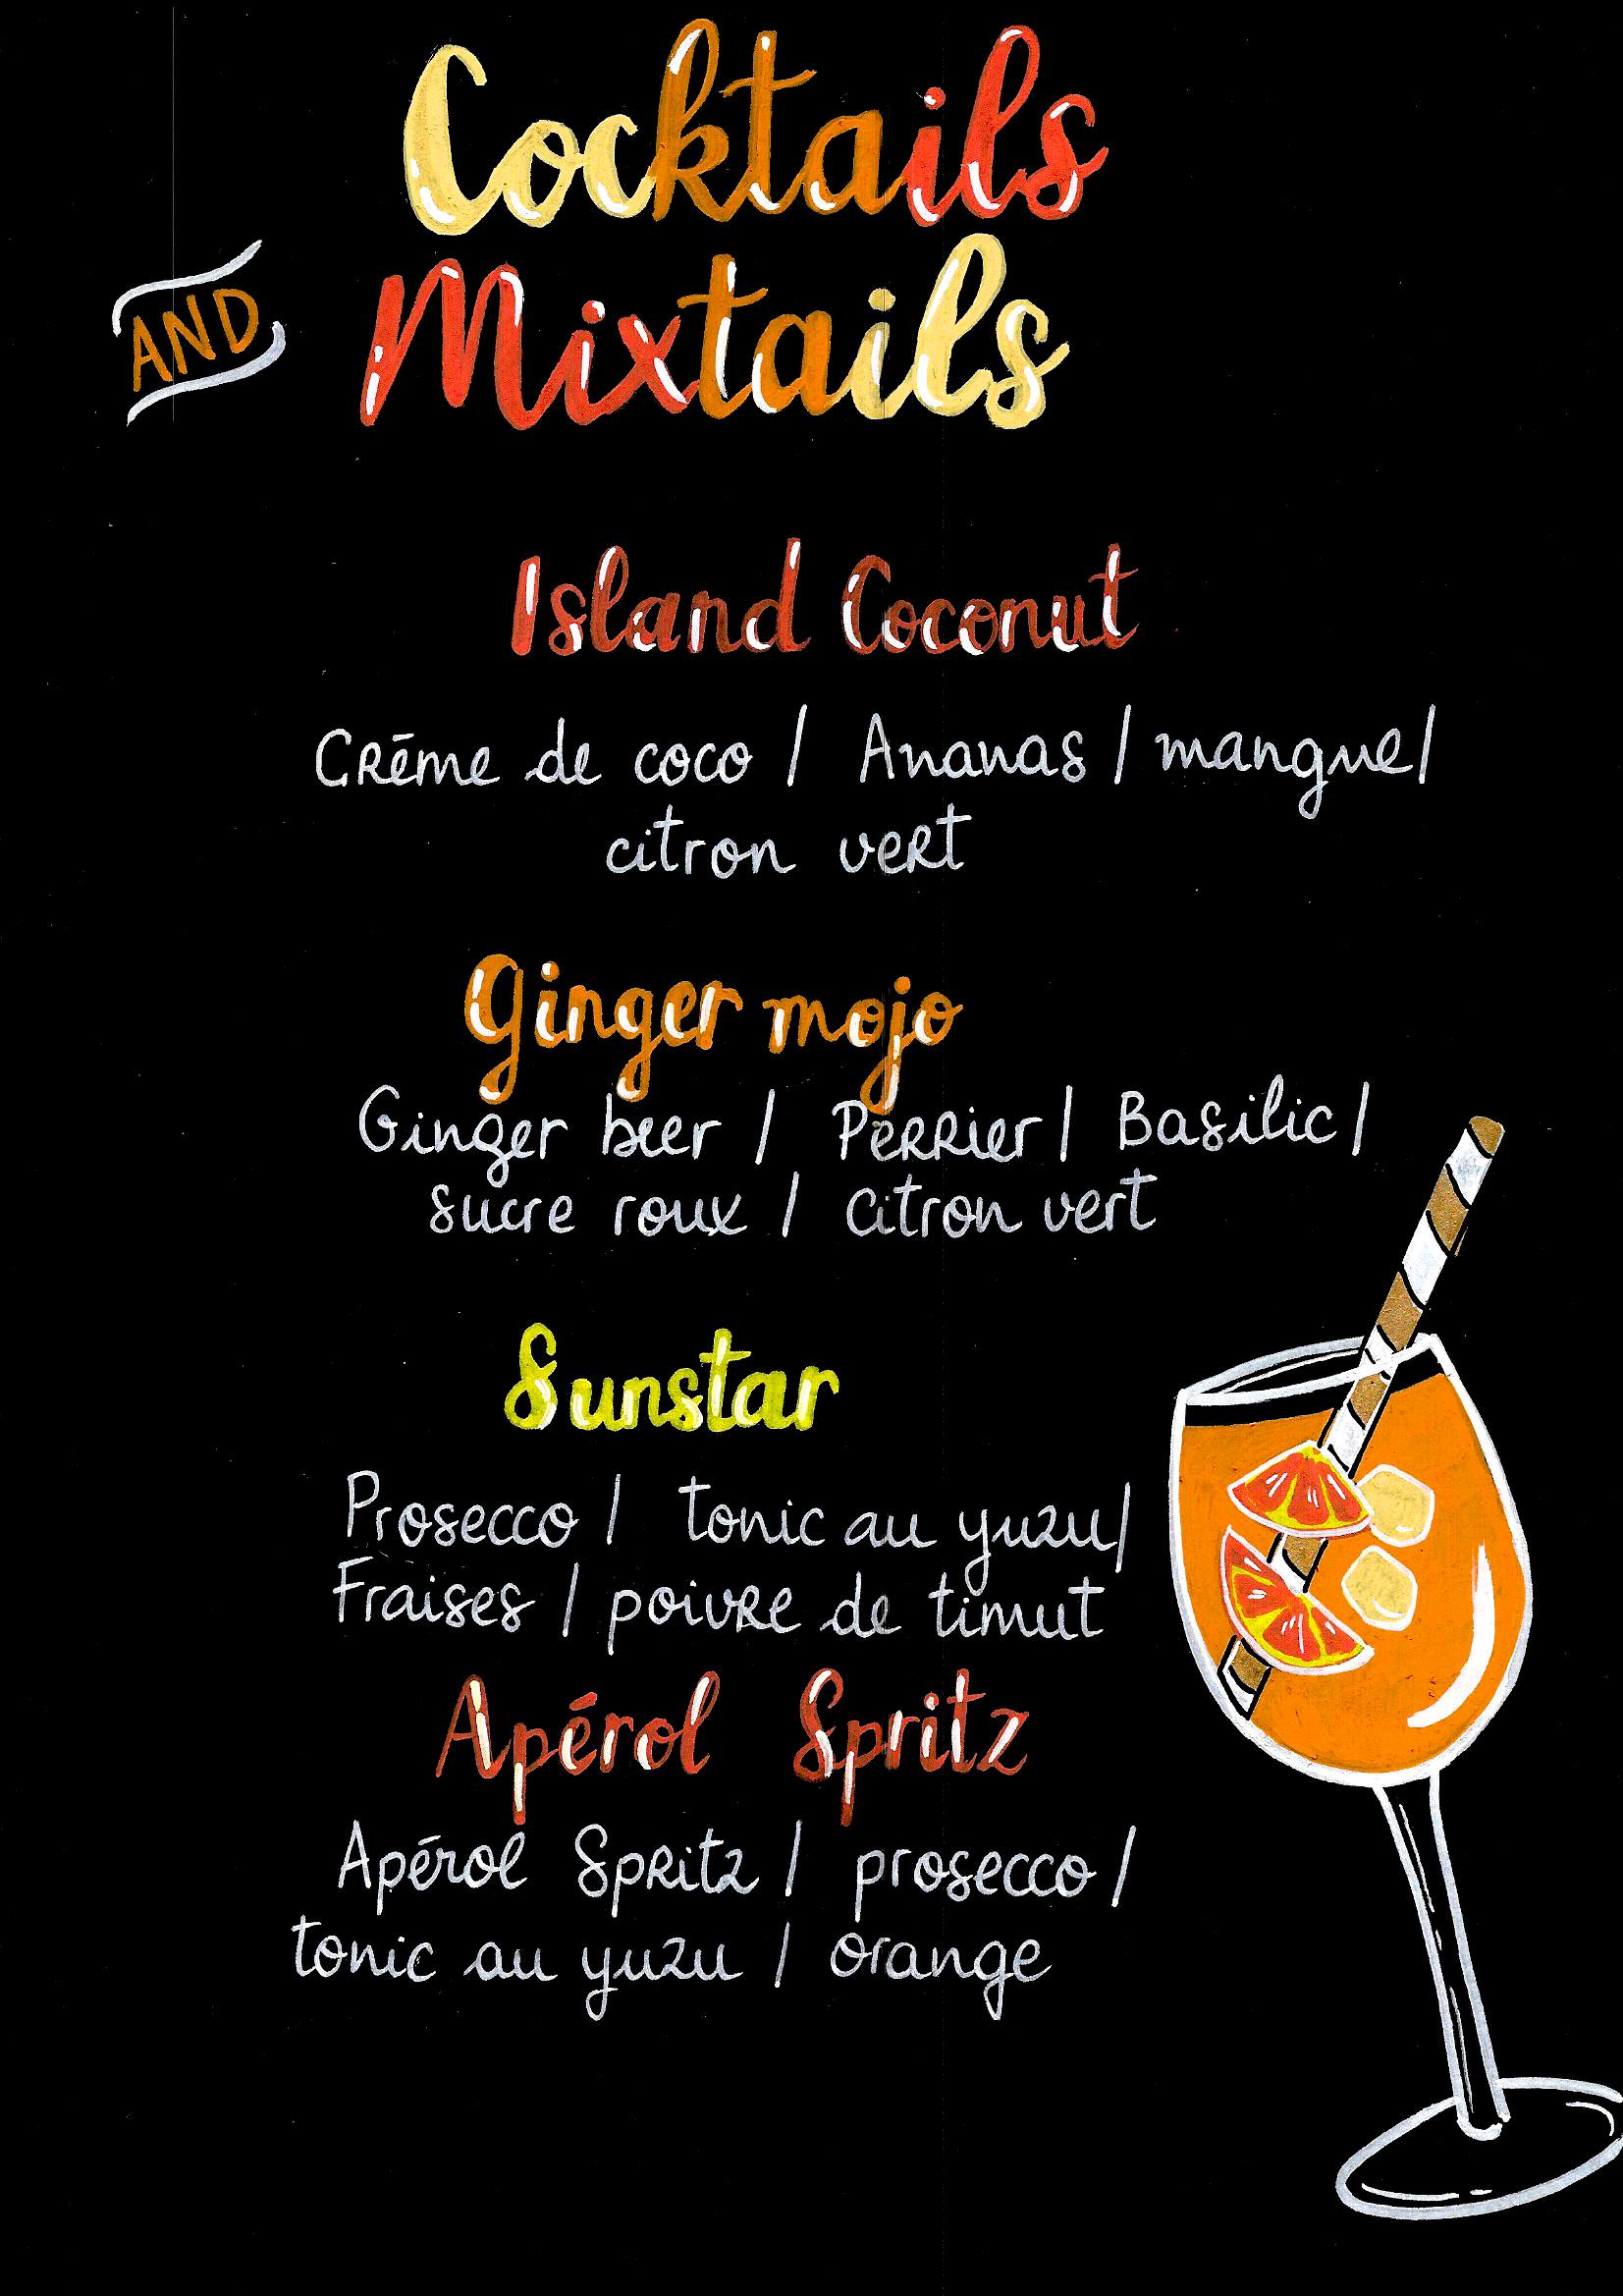 Cocktails
AND Mixtails
Island Coconut
Crème de coco / Ananas / mangue /
citron vert
Ginger mojo
Ginger beer / Perrier / Basilic /
sucre roux / citron vert
Sunstar
Prosecco / tonic au yuzu /
Fraises / poivre de timut
Apérol Spritz
Apérol Spritz / prosecco /
tonic au yuzu / orange